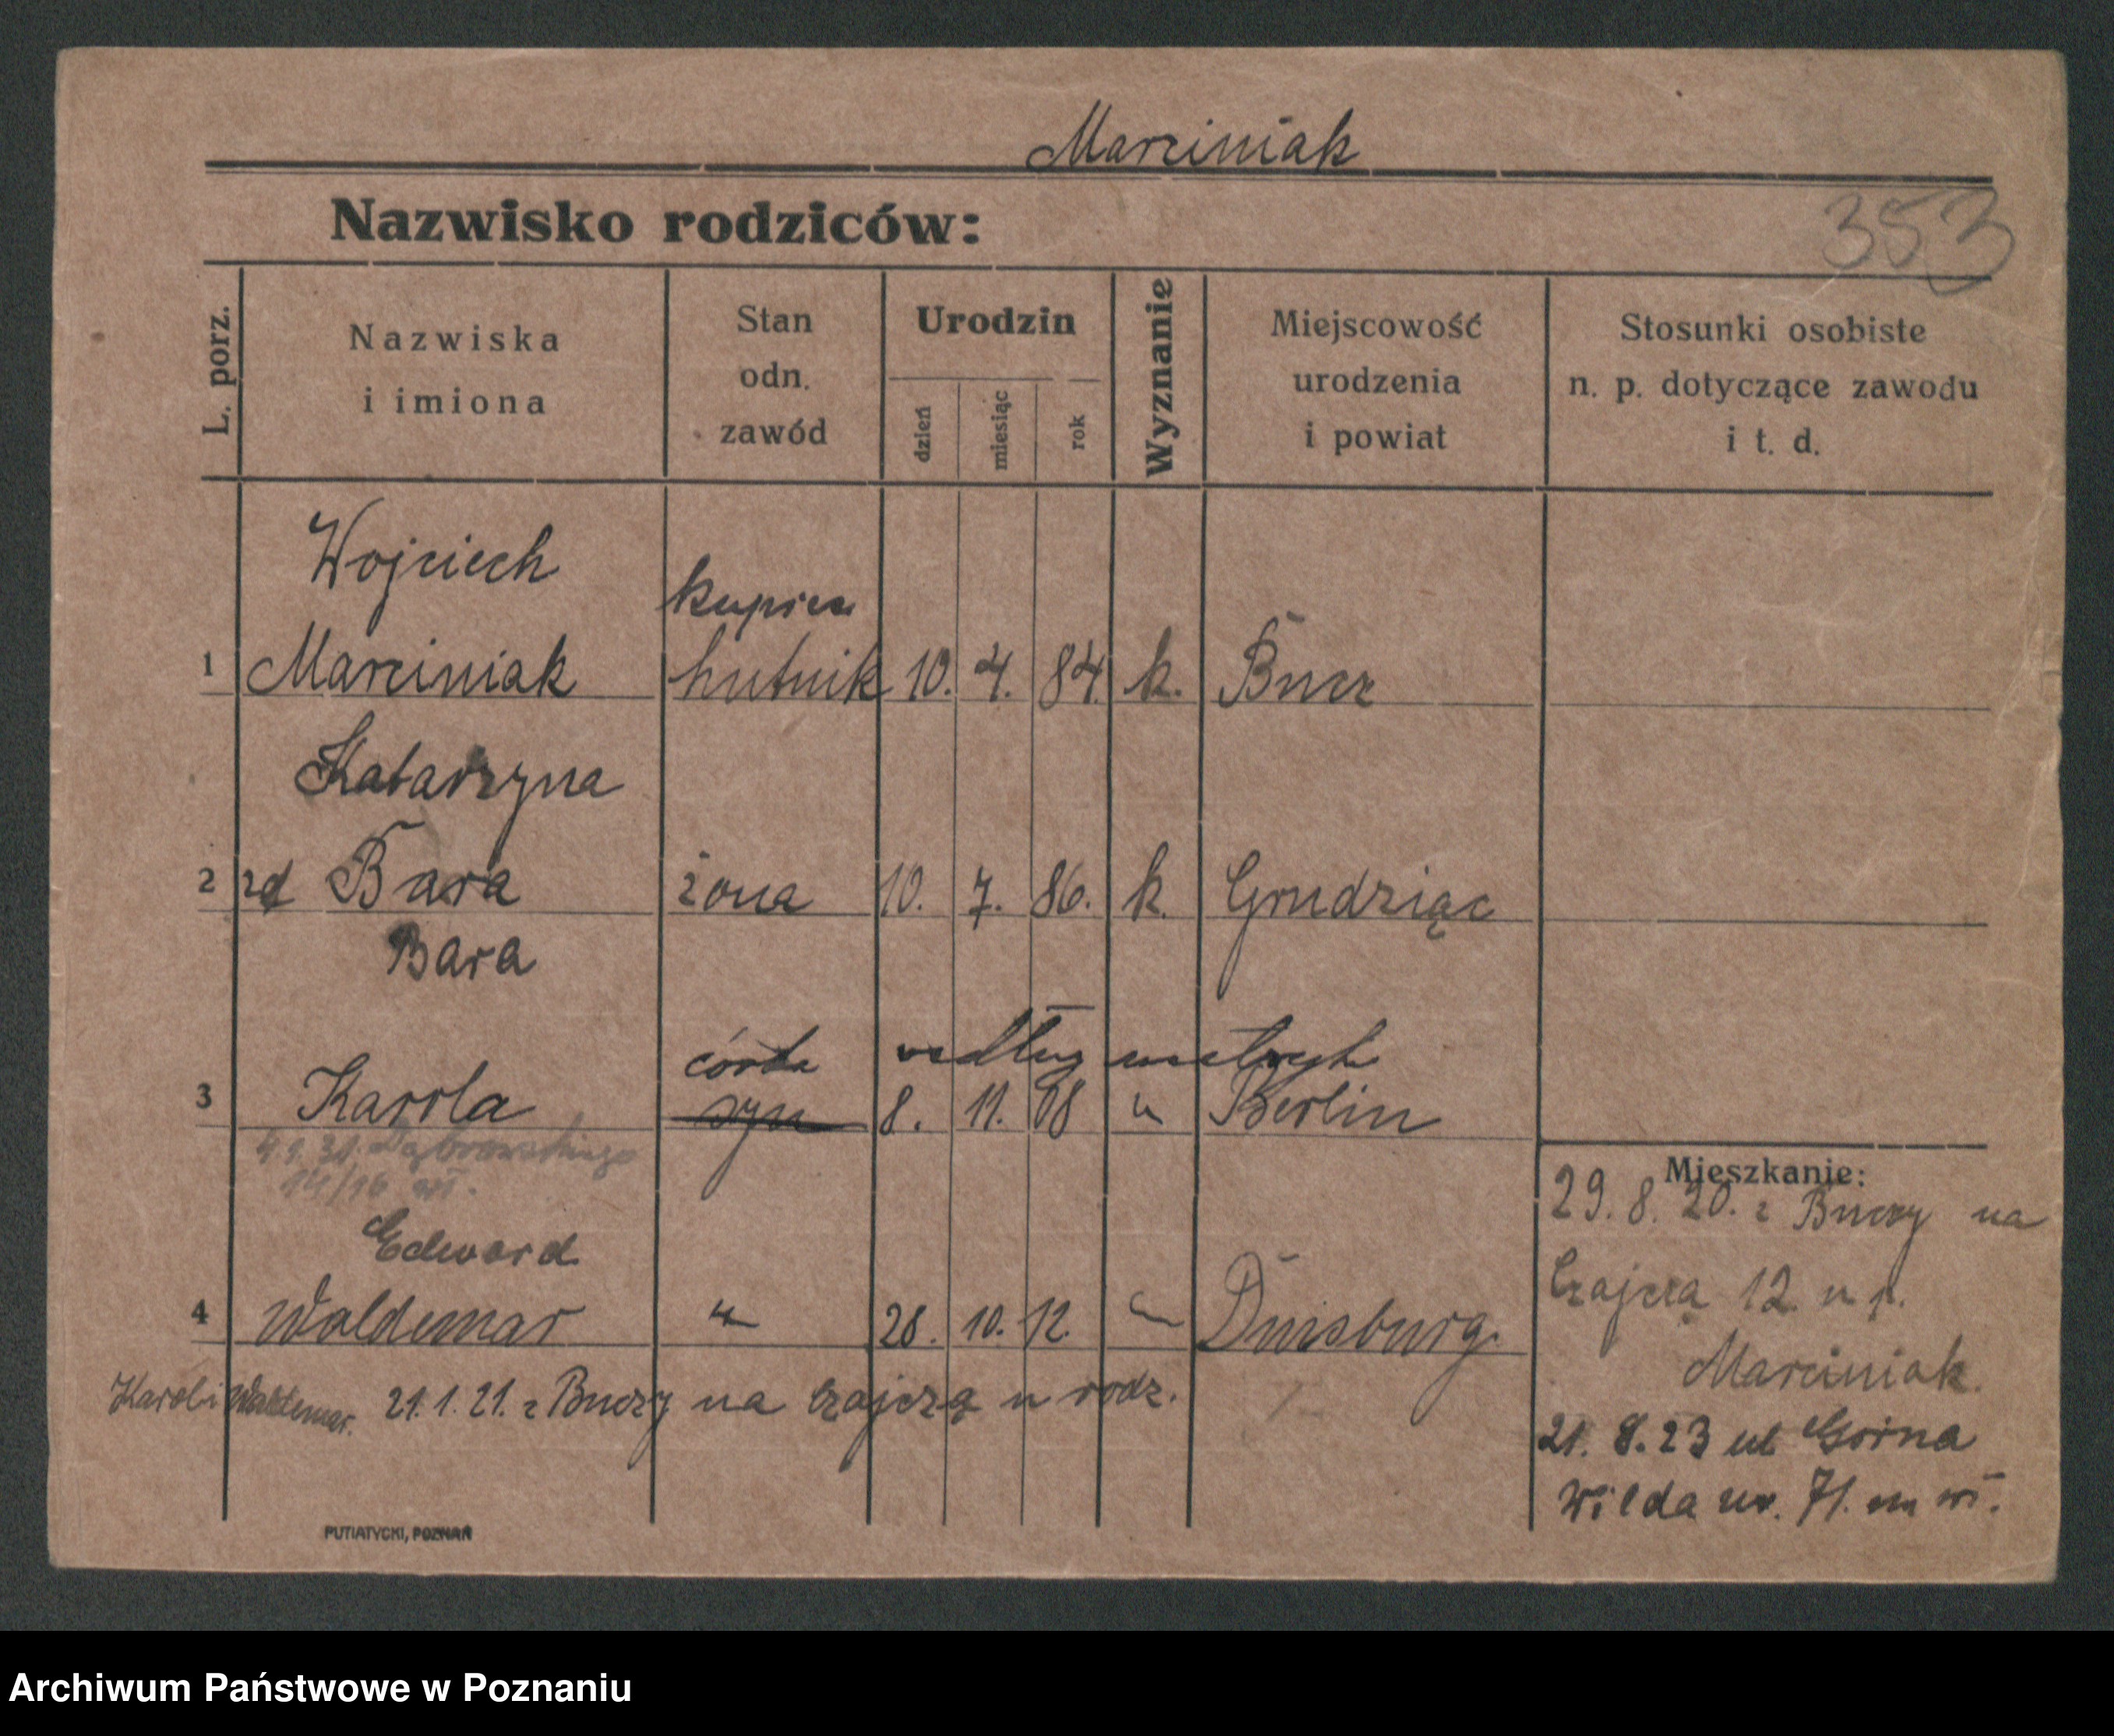 Marciniak
Nazwisko rodziców:
353
L. porz.
Nazwiska
i imiona
Stan
odn.
zawód
Urodzin
dzień
miesiąc
rok
Wyznanie
Miejscowość
urodzenia
i powiat
Stosunki osobiste
n. p. dotyczące zawodu
i t. d.
Wojciech
kupiec
1 Marciniak hutnik 10. 4. 84. k. Bucz
Katarzyna
2 zd Bara żona 10. 7. 86. k. Grudziąc
Bara
córka według metryk
3 Karola syn 8. 11. 08 " Berlin
4.1.31. Dąbrowskiego
14/16
Edward
4 Waldemar " 28. 10. 12. " Duisburg.
Karol i Waldemar. 21.1.21. z Buczy na Czajczą u rodz.
Mieszkanie:
29. 8. 20. z Buczy na
Czajczą 12. u p.
Marciniak.
21. 8. 23 ul Górna
Wilda nr. 71. m wł.
PUTIATYCKI, POZNAŃ
Archiwum Państwowe w Poznaniu